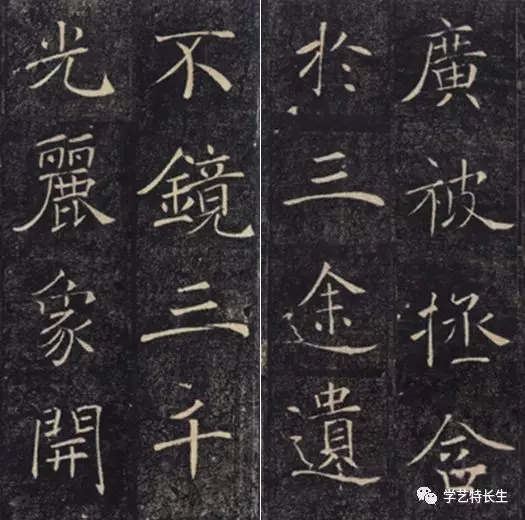 廣被拯含
於三途遺
不鏡三千
光麗象開
学艺特长生